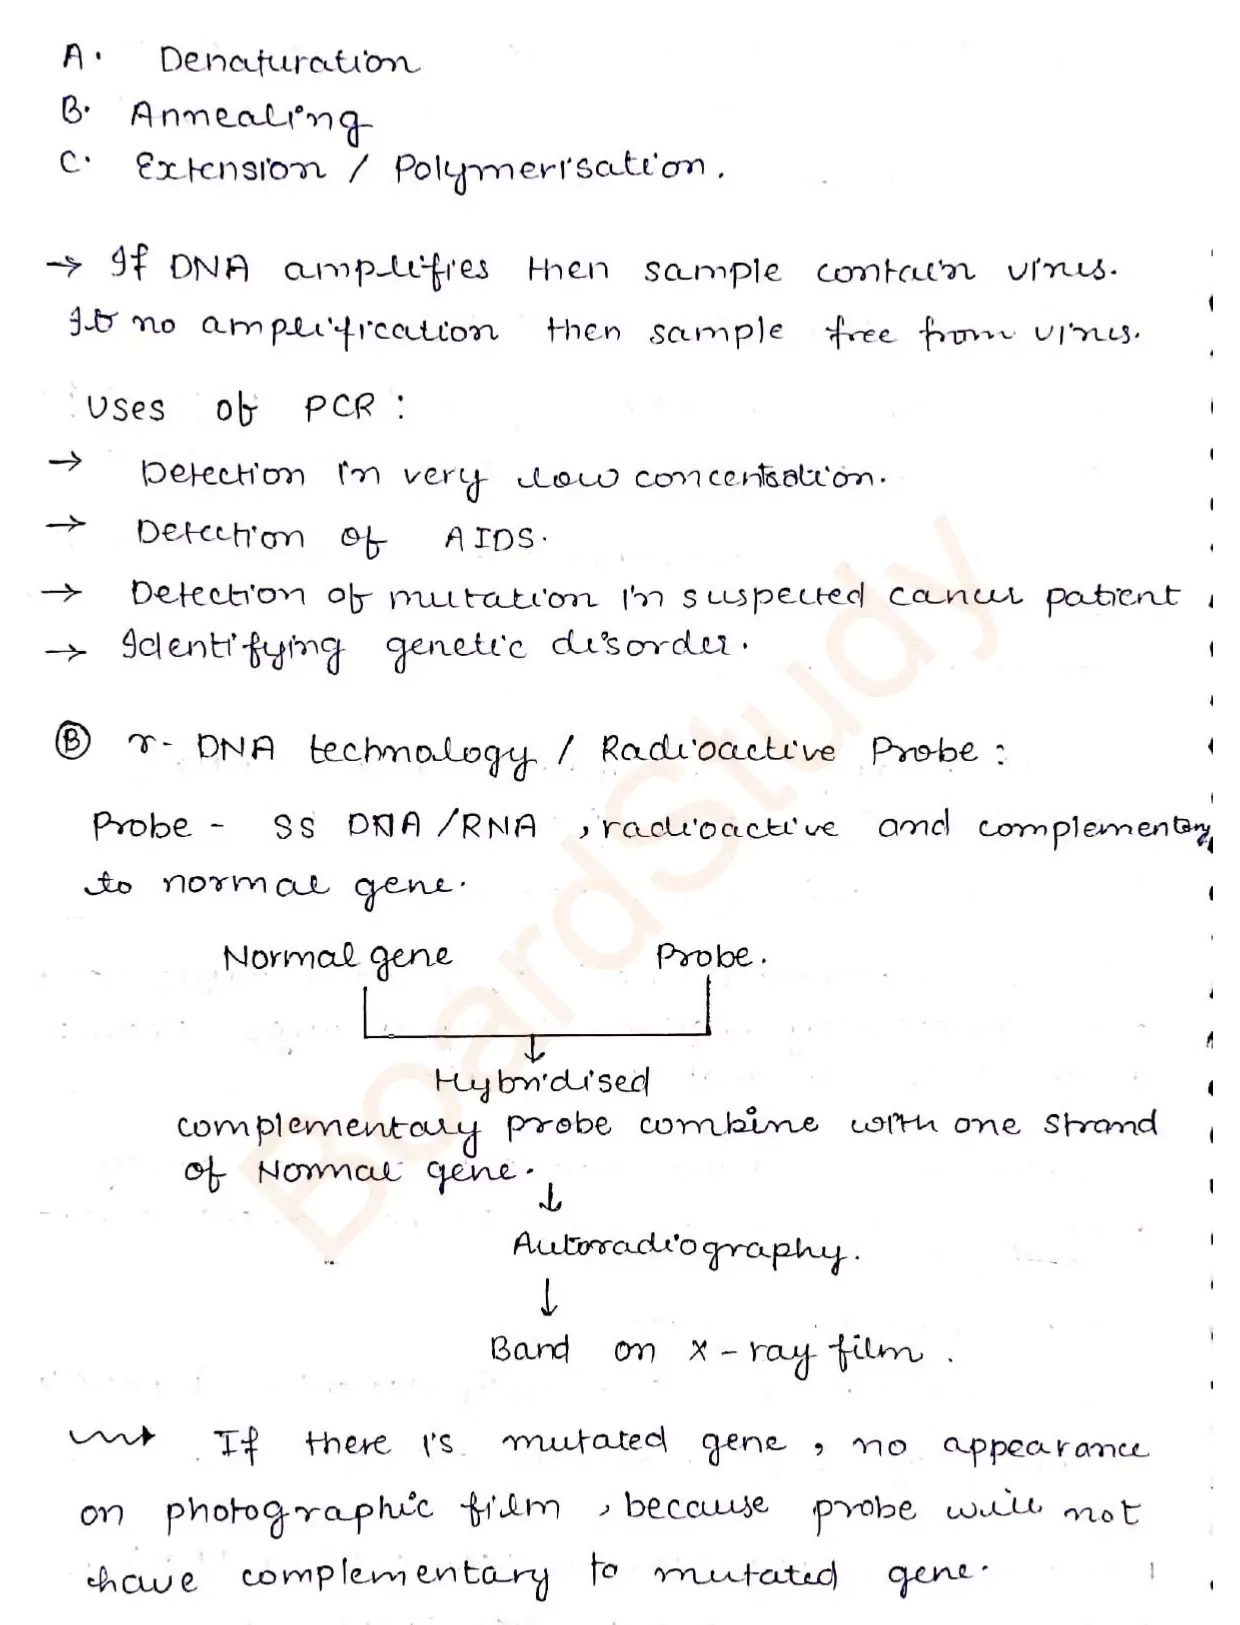 A. Denaturation
B. Annealing
C. Extension / Polymerisation.
→ If DNA amplifies then sample contain virus.
If no amplification then sample free from virus.
Uses of PCR :
→ Detection in very low concentration.
→ Detection of AIDS.
→ Detection of mutation in suspected cancer patient
→ Identifying genetic disorder.
Ⓑ r- DNA technology / Radioactive Probe :
Probe - SS DNA /RNA , radioactive and complementary
to normal gene.
Normal gene Probe.
↓
Hybridised
complementary probe combine with one strand
of Normal gene.
↓
Autoradiography.
↓
Band on x-ray film .
If there is mutated gene , no appearance
on photographic film , because probe will not
have complementary to mutated gene.
BoardStudy